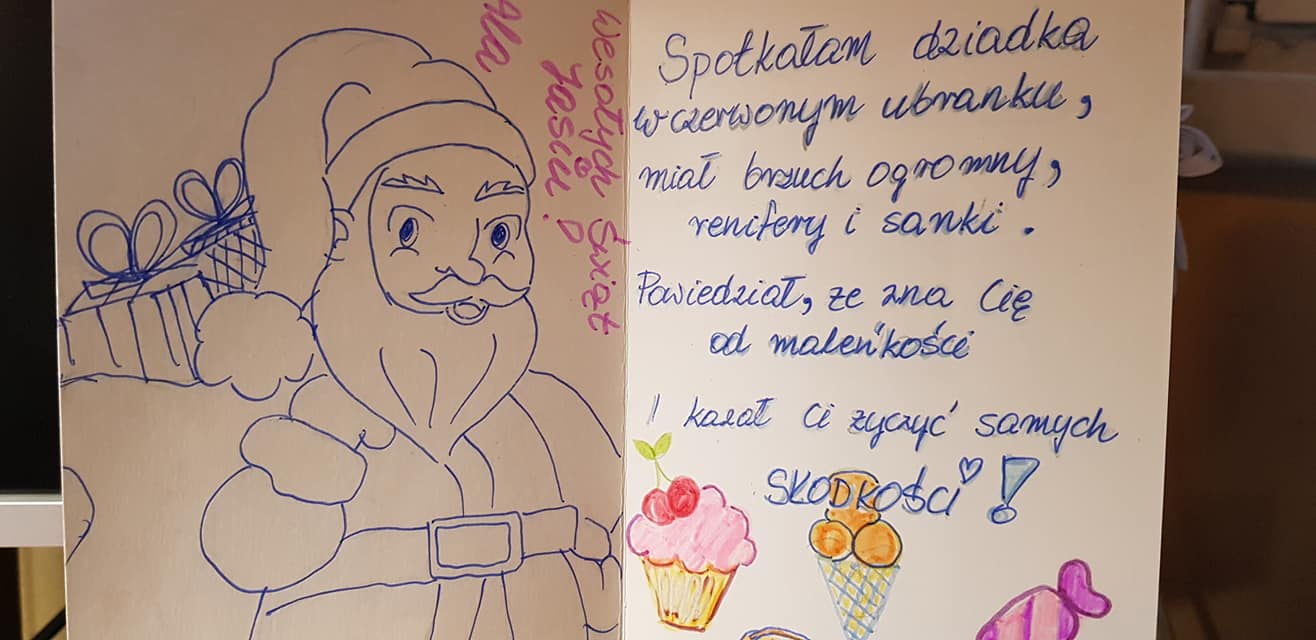 Wesołych Świąt
Jasiu!
Ala
Spotkałam dziadka
w czerwonym ubranku,
miał brzuch ogromny,
renifery i sanki.
Powiedział, że zna Cię
od maleńkości
I kazał Ci życzyć samych
SŁODKOŚCI!